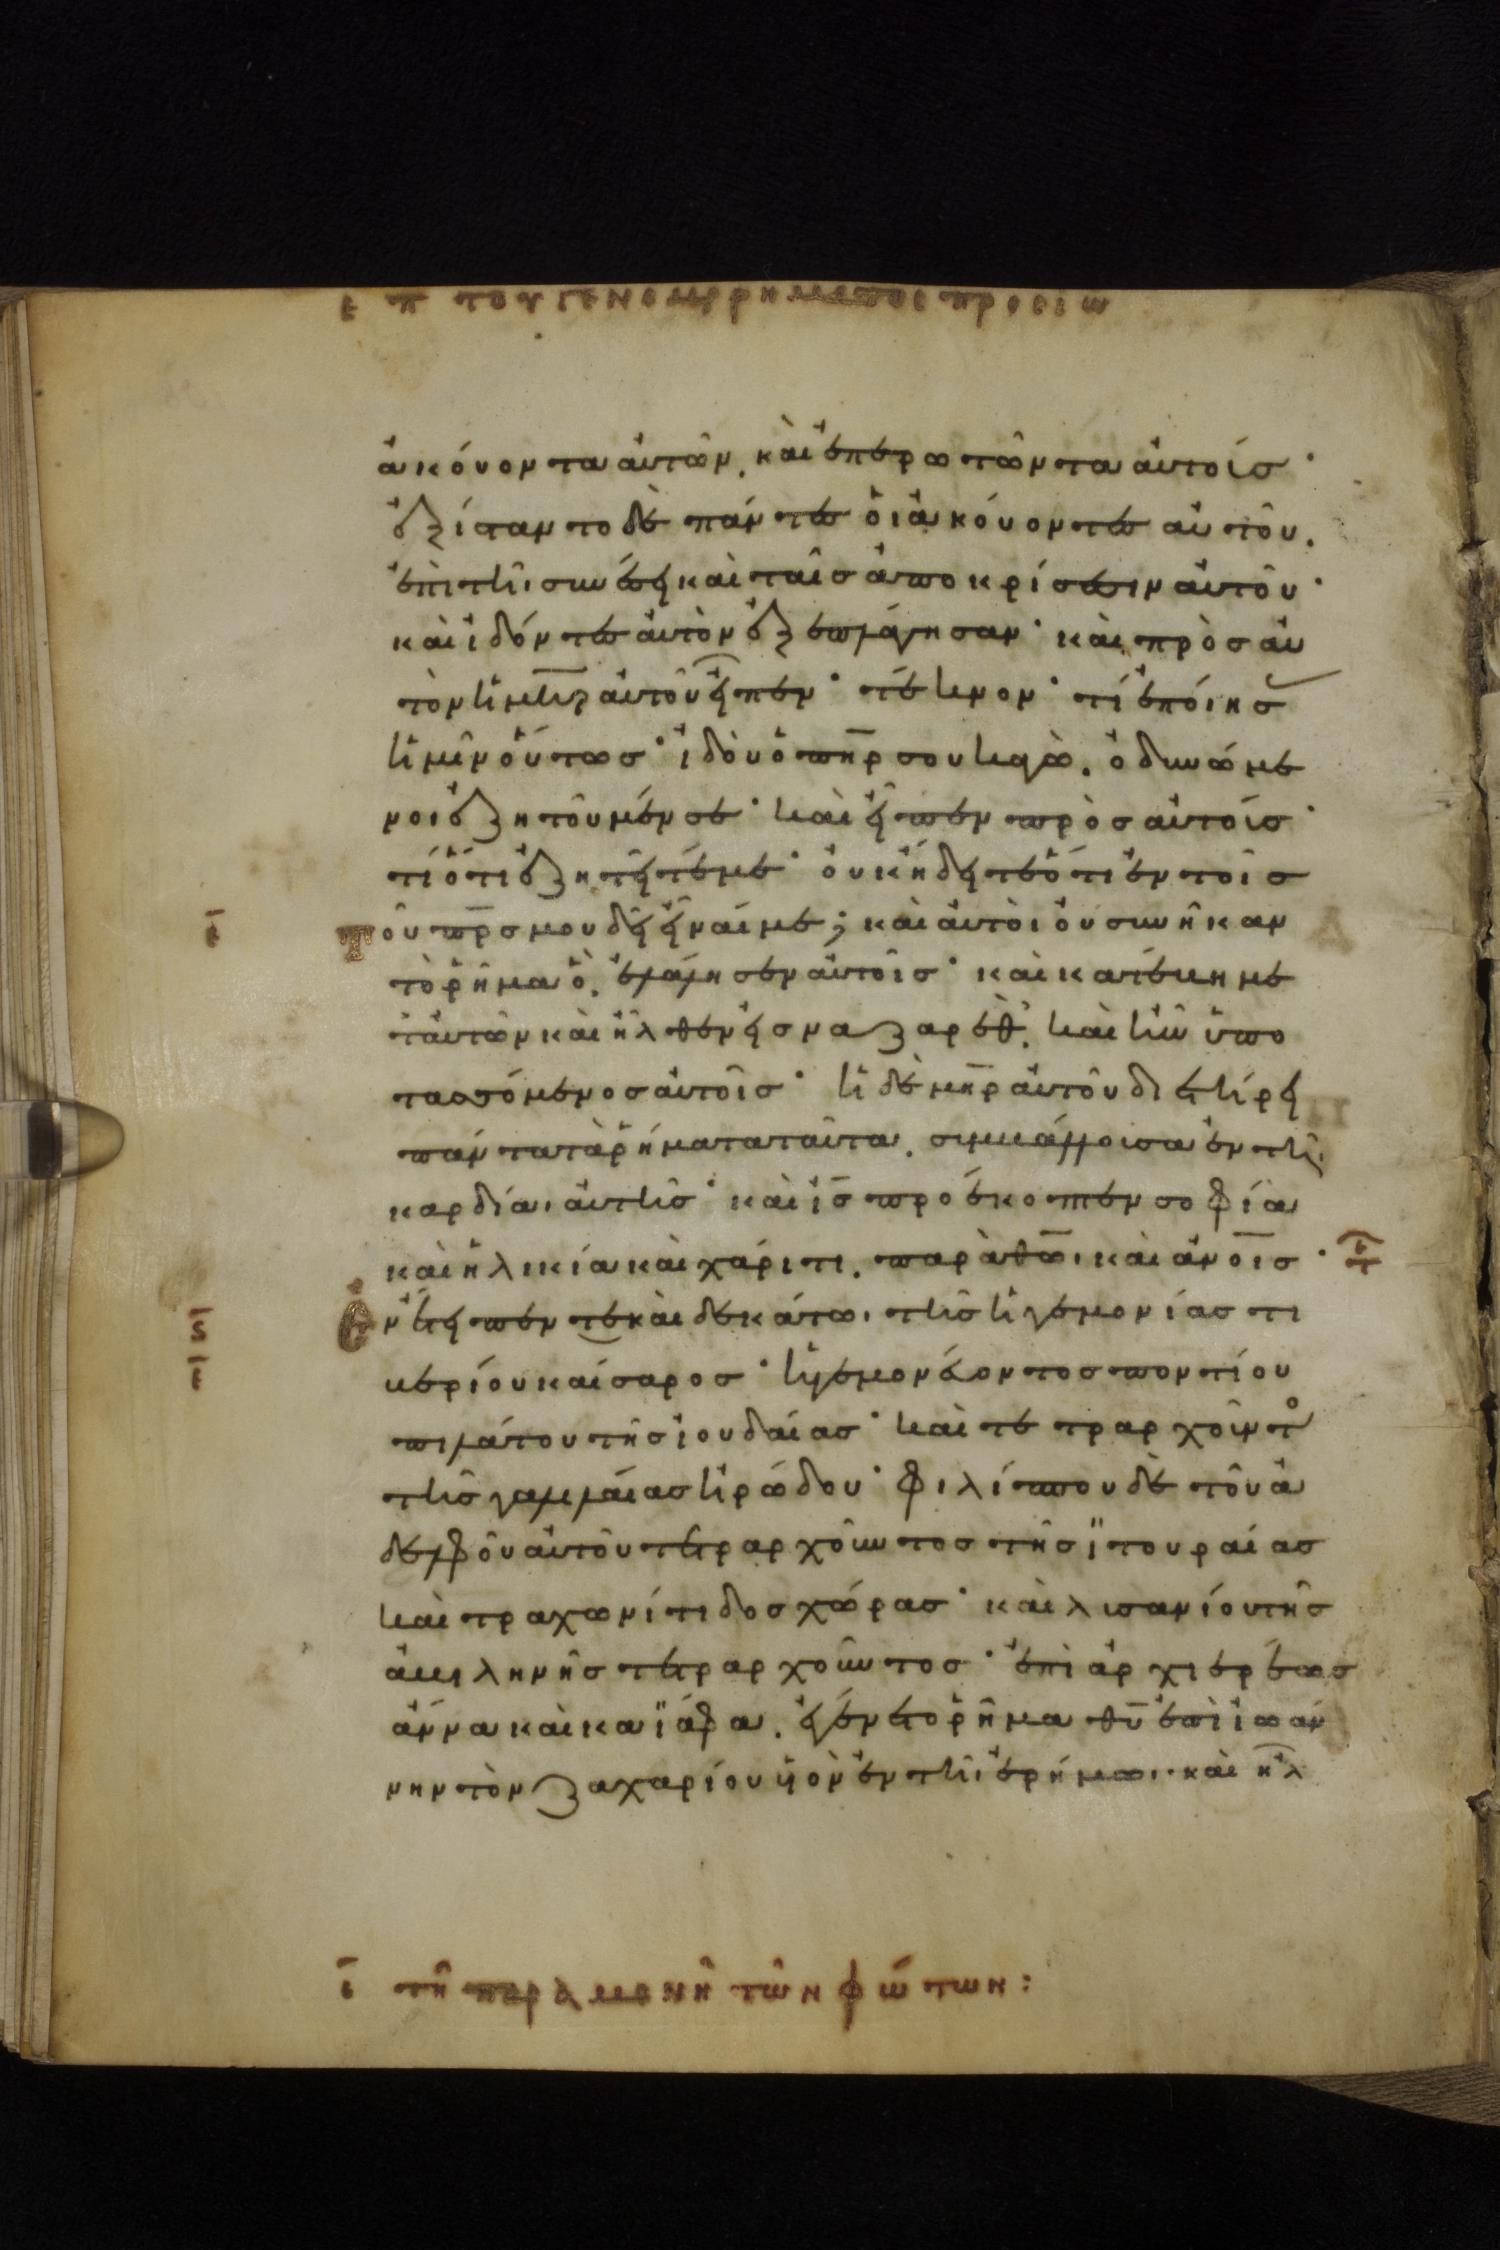 ε̅ π του γενομενου ρηματος προς ιω
ἀκούοντα αὐτῶν. καὶ ἐπερωτῶντα αὐτοίσ·
ἐξίσταντο δὲ πάντεσ ὁι ἀκούοντεσ αὐτοῦ.
ἐπὶ τῆι συνέσει καὶ ταῖσ ἀποκρίσεσιν αὐτοῦ·
καὶ ἰδόντεσ αὐτὸν ἐξεπλάγησαν· καὶ πρὸσ αὐ
τὸν ἡ μη̅ρ αὐτοῦ εἶπεν· τέκνον· τί ἐποίησ
ἡμῖν οὕτωσ· ἰδοὺ ὁ πη̅ρ σου κἀγὼ. ὀδυνώμε
νοι ἐζητοῦμέν σε· καὶ εἶπεν πρὸσ αὐτοίσ·
τί ὅτι ἐζητεῖτέ με· οὐκ ἤδειτε ὅτι ἐν τοῖσ
τοῦ πρ̅σ μου δεῖ εἶναί με; καὶ αὐτοὶ οὐ συνῆκαν
τὸ ῥῆμα ὃ. ἐλάλησεν αὐτοῖσ· καὶ κατέβη με
τ̓αὐτῶν καὶ ἦλθεν εἰσ ναζαρέθ. καὶ ἦν ὑπο
τασσόμενοσ αὐτοῖσ· ἡ δὲ μη̅ρ αὐτοῦ διετήρει
πάντα τὰ ῥήματα ταῦτα. συμβάλλουσα ἐν τῆι
καρδία. αὐτῆσ· καὶ ι̅σ προέκοπτεν σοφία
καὶ ἡλικία καὶ χάριτι. παρὰ θω̅. καὶ ἀνο̅ισ·
Ἐν ἔτει πεντεκαιδεκάτω. τῆσ ἡγεμονίασ τι
βερίου καίσαροσ· ἡγεμονεύοντοσ ποντίου
πιλάτου τῆσ ἰουδαίασ· καὶ τετραρχοῦντο
τῆσ γαλιλαίασ ἡρώδου· φιλίππου δὲ τοῦ ἀ
δελφοῦ αὐτοῦ τετραρχοῦντοσ τῆσ ϊτουραίασ
καὶ τραχωνίτιδοσ χώρασ· καὶ λισανίου τῆσ
ἀβιληνῆσ τετραρχοῦντοσ· ἐπὶ ἀρχιερέωσ
ἄννα καὶ καϊάφα. ἐγένετο ῥῆμα θυ̅ ἐπὶ ἰωάν
νην τὸν ζαχαρίου ὑιὸν ἐν τῆι ἐρήμω. καὶ ἦλ
ε̅ τῆ παραμονῆ τῶν φώτων: